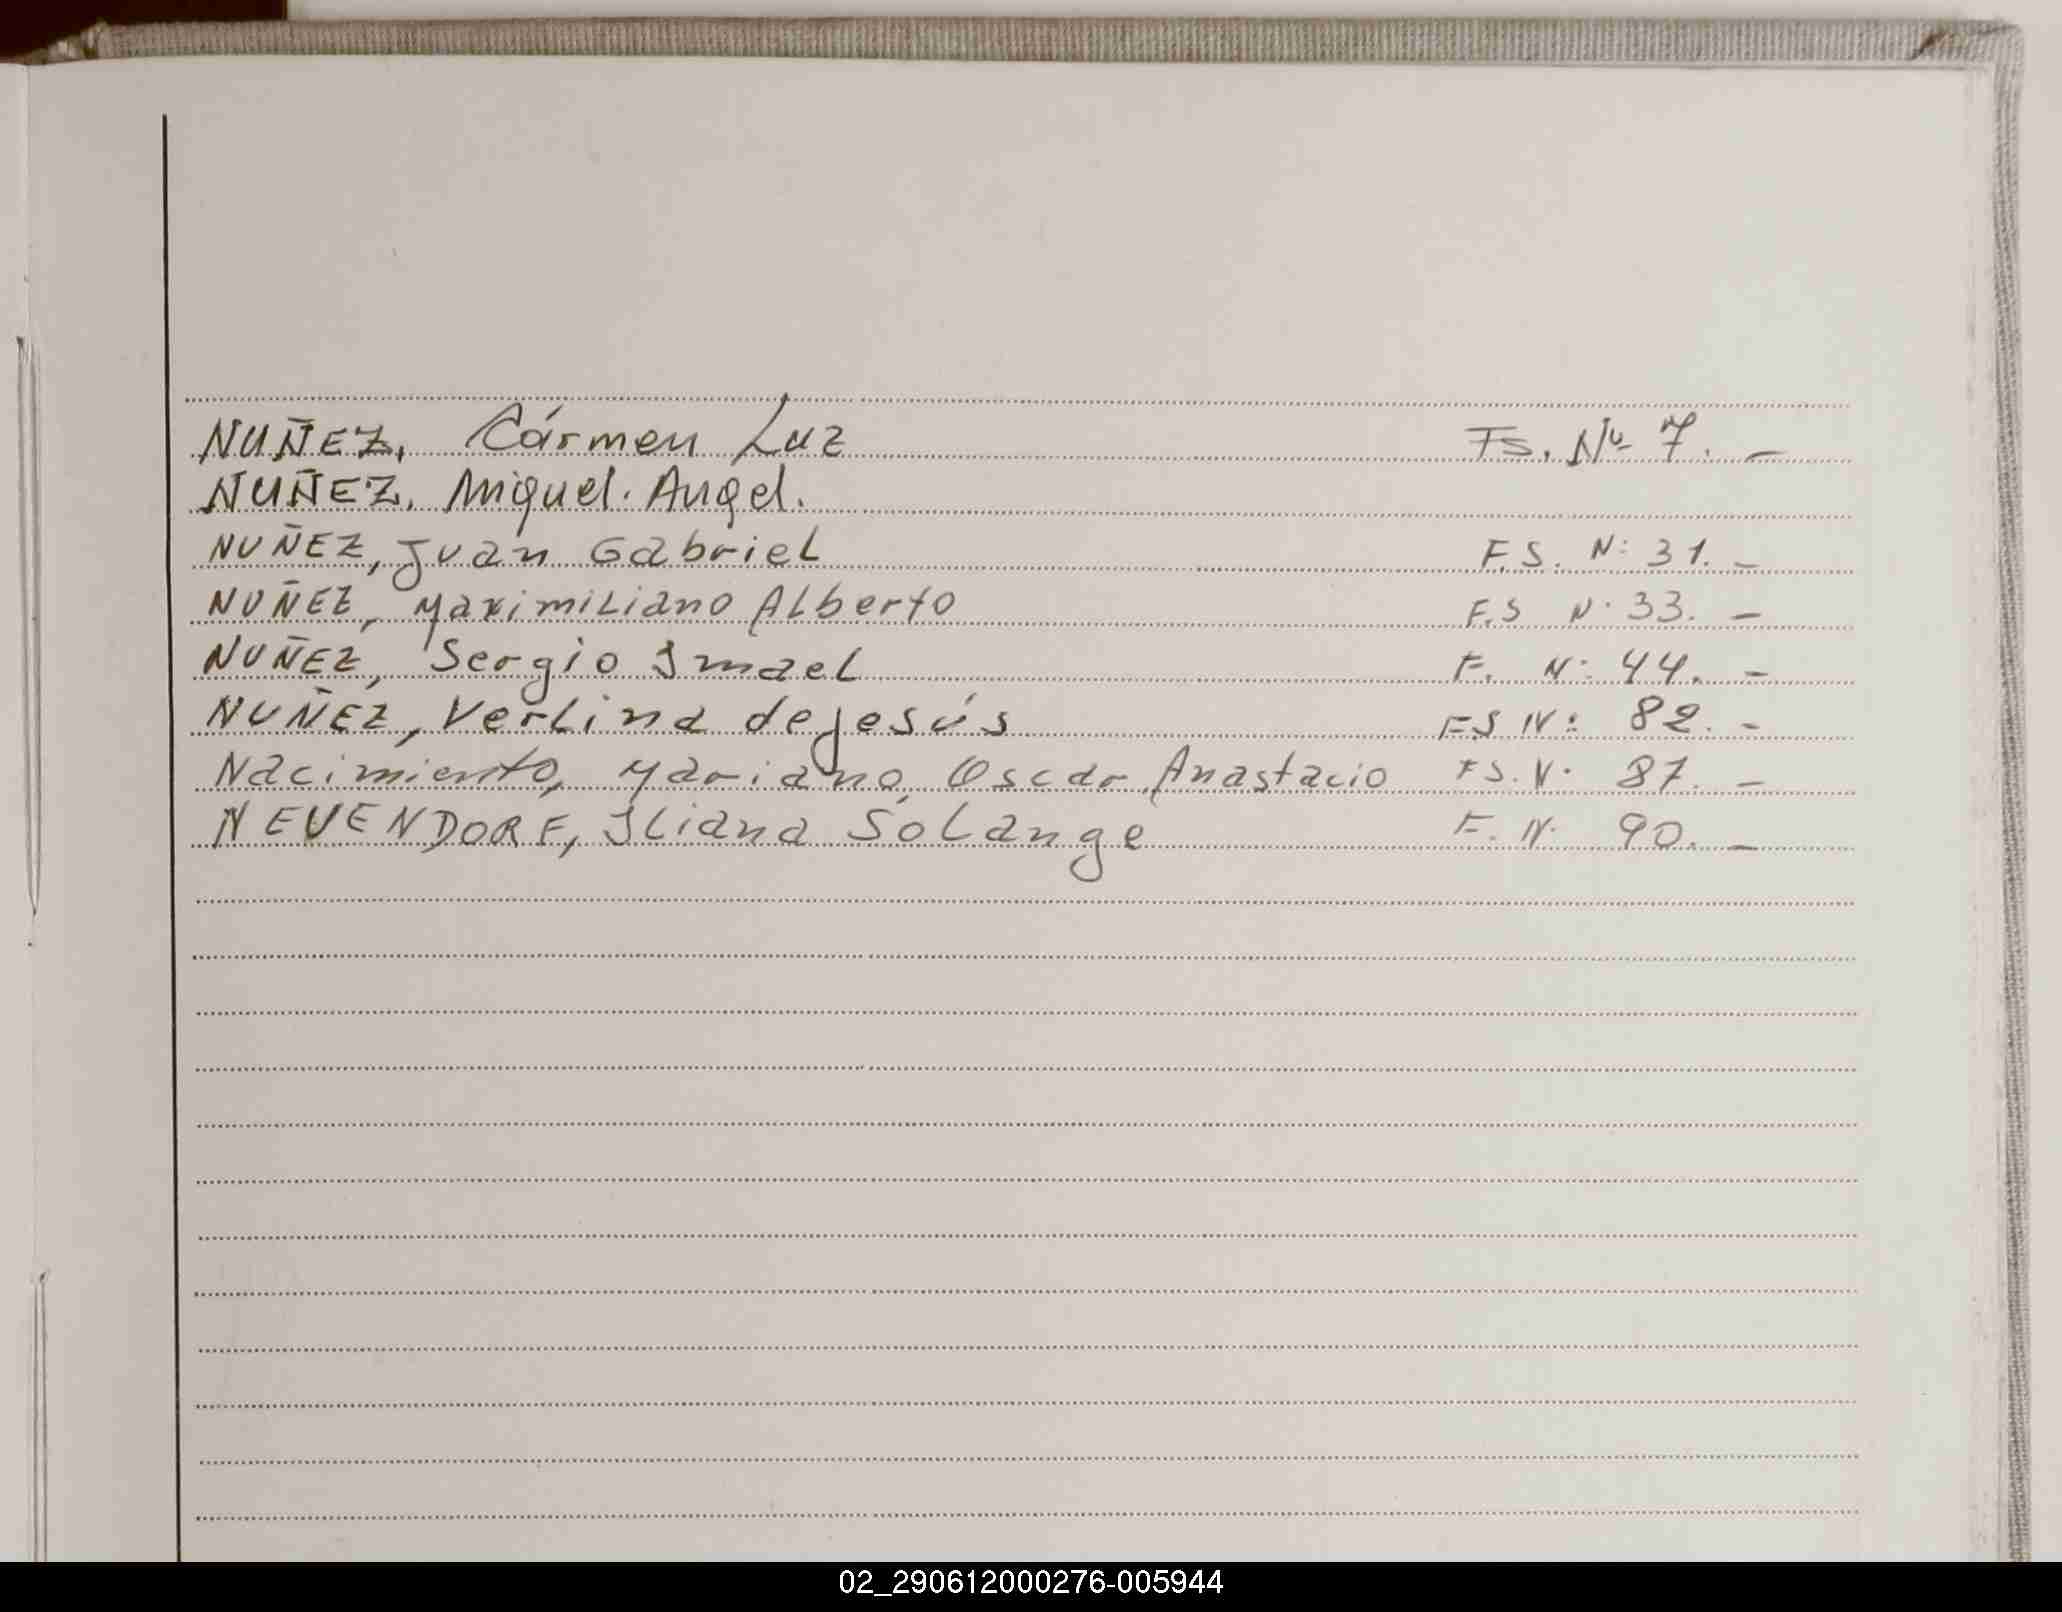 NUÑEZ, Cármen Luz Fs. Nº 7. -
NUÑEZ. Miguel. Angel.
NUÑEZ, Juan Gabriel F.S. N: 31. -
NUÑEZ, Maximiliano Alberto F.S N. 33. -
NUÑEZ, Sergio Ismael F. N: 44. -
NUÑEZ, Verlina de Jesús FS N: 82. -
Nacimiento, Mariano Oscar Anastacio FS. N. 87. -
NEUENDORF, Iliana Solange F. N. 90. -
02_290612000276-005944